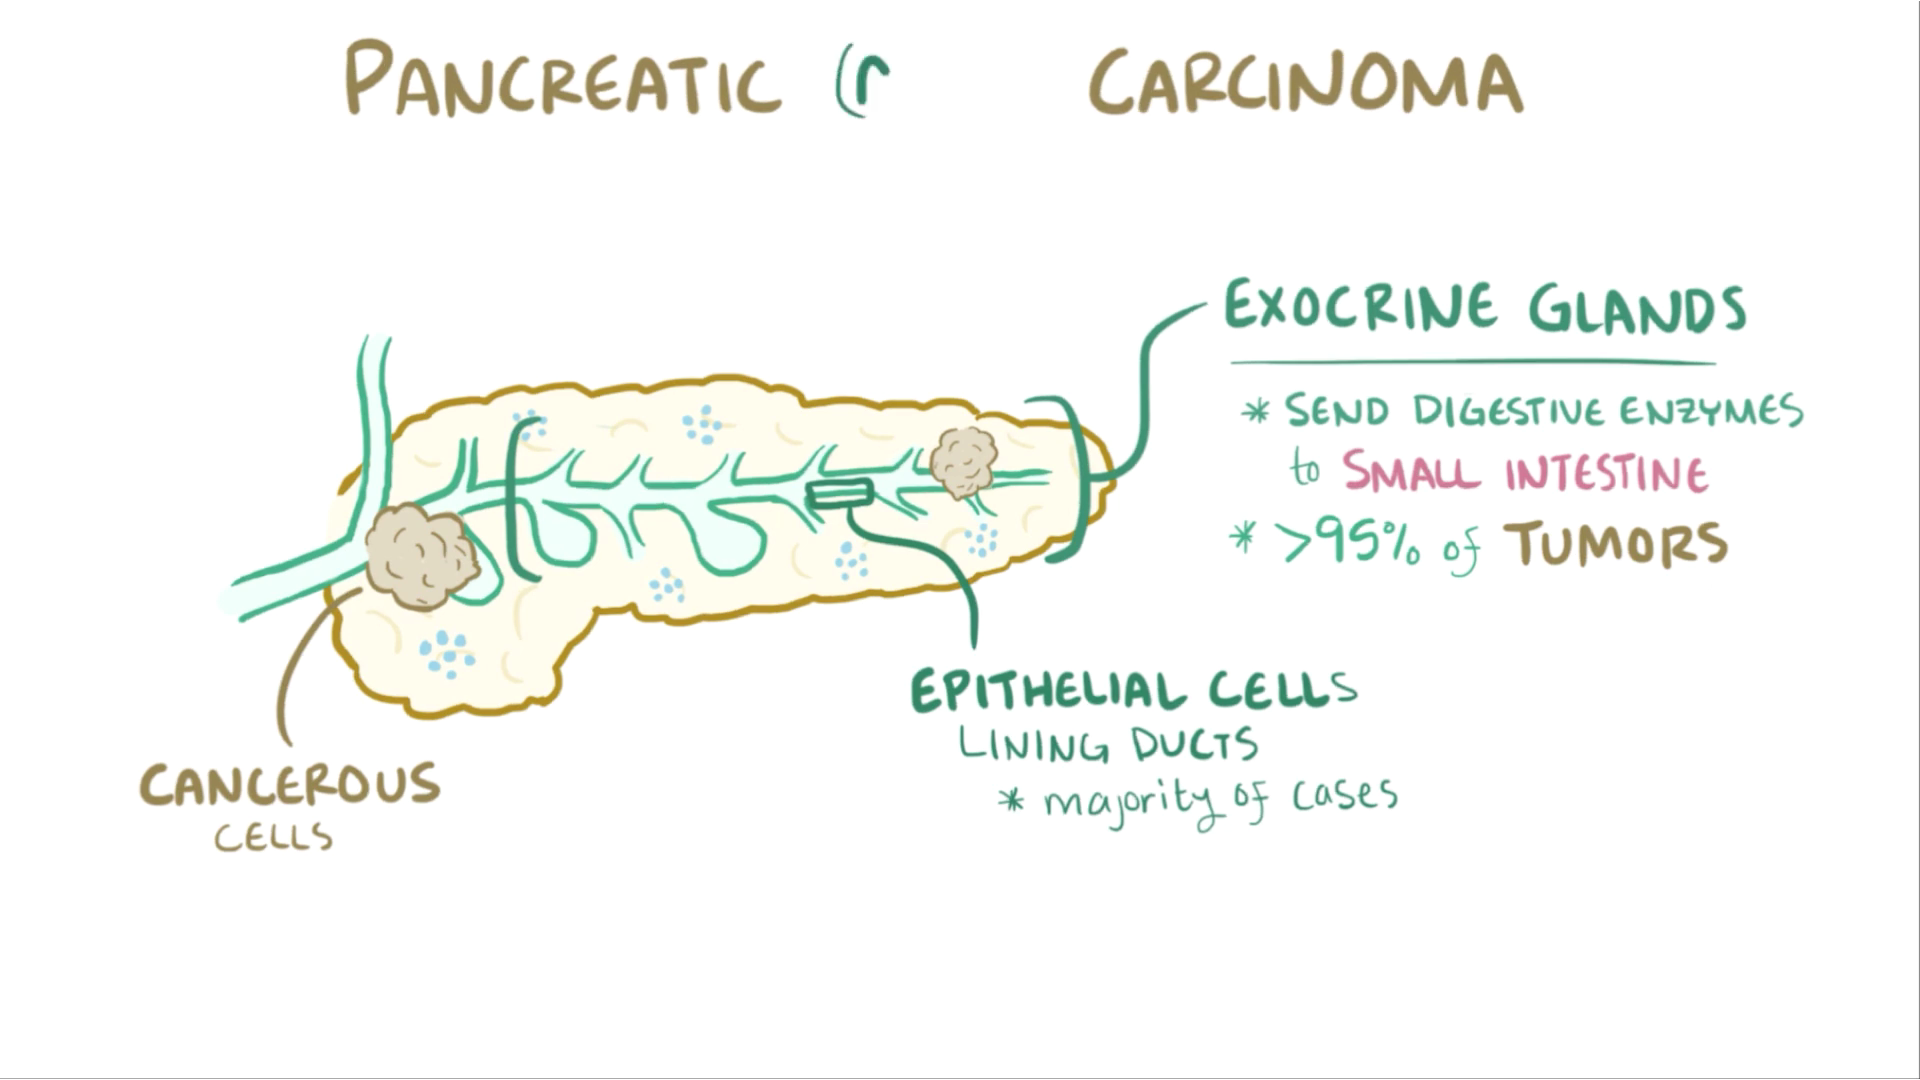 PANCREATIC ( CARCINOMA
EXOCRINE GLANDS
* SEND DIGESTIVE ENZYMES
to SMALL INTESTINE
* >95% of TUMORS
EPITHELIAL CELLS
LINING DUCTS
* majority of cases
CANCEROUS
CELLS